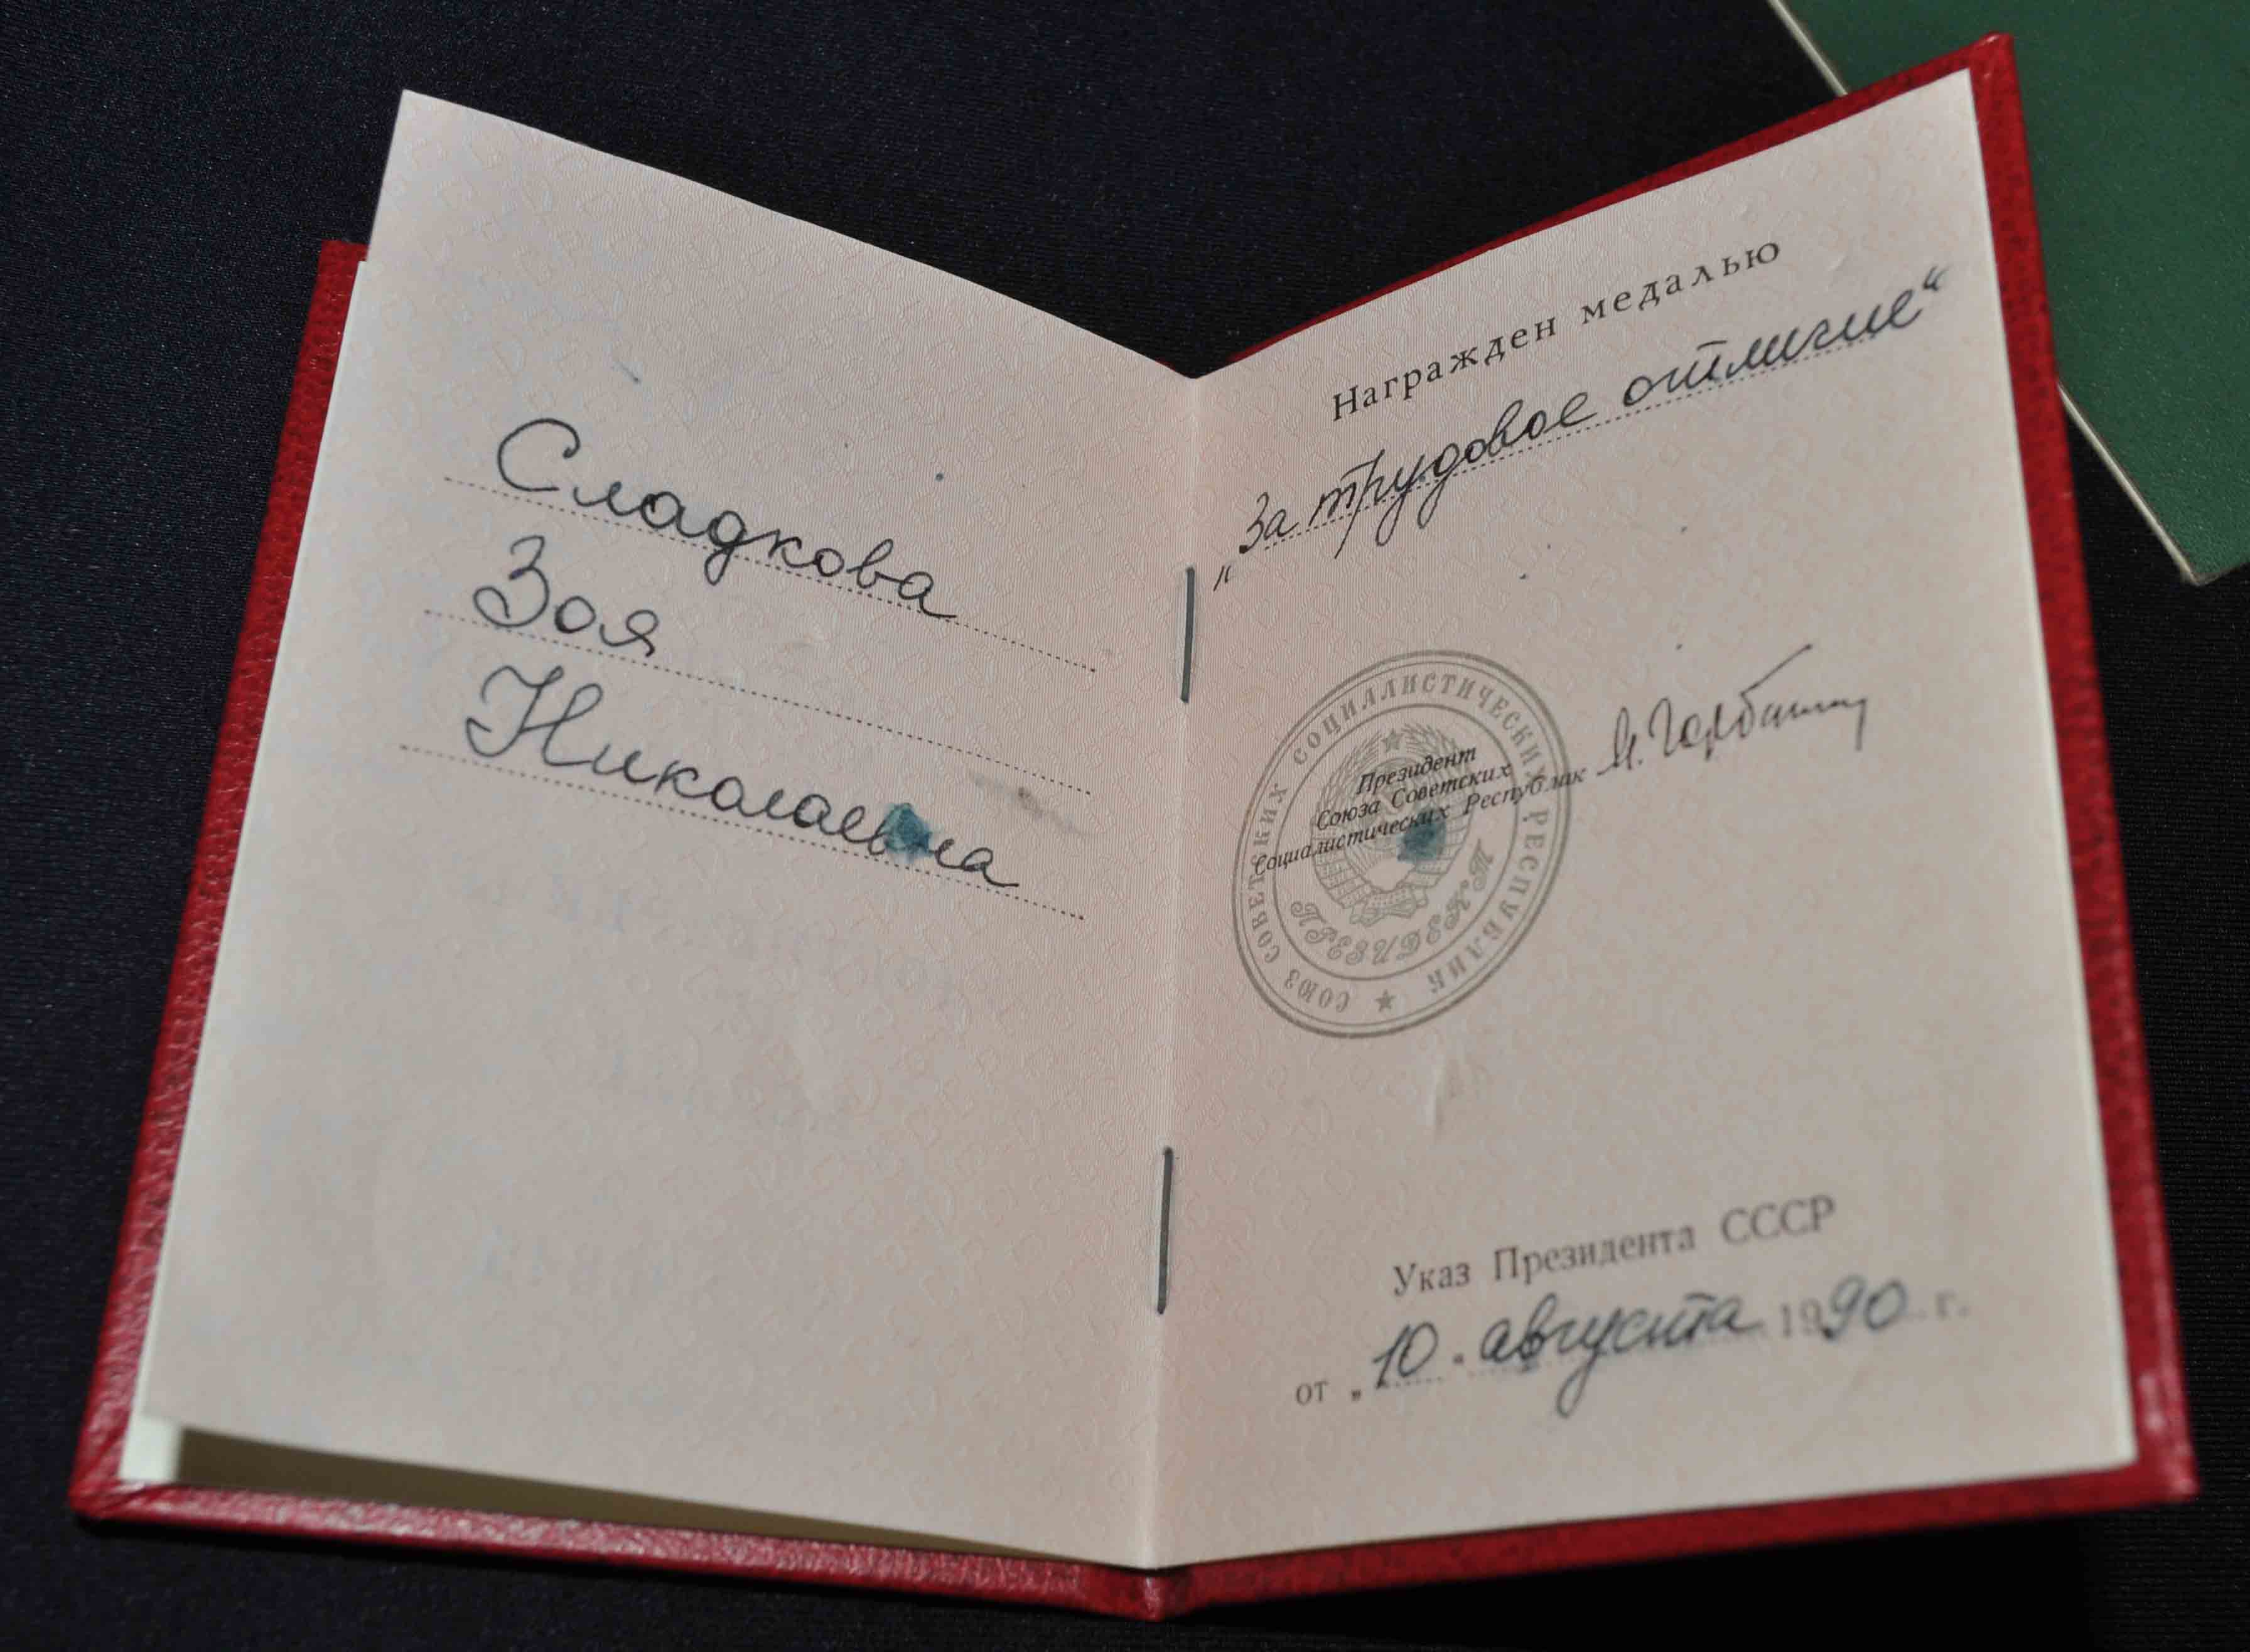 Сладкова
Зоя
Николаевна
Награжден медалью
„За трудовое отличие“
СОЮЗ СОВЕТСКИХ СОЦИАЛИСТИЧЕСКИХ РЕСПУБЛИК
ПРЕЗИДЕНТ
Президент
Союза Советских
Социалистических Республик
М. Горбачев
Указ Президента СССР
от „10“ августа 1990 г.